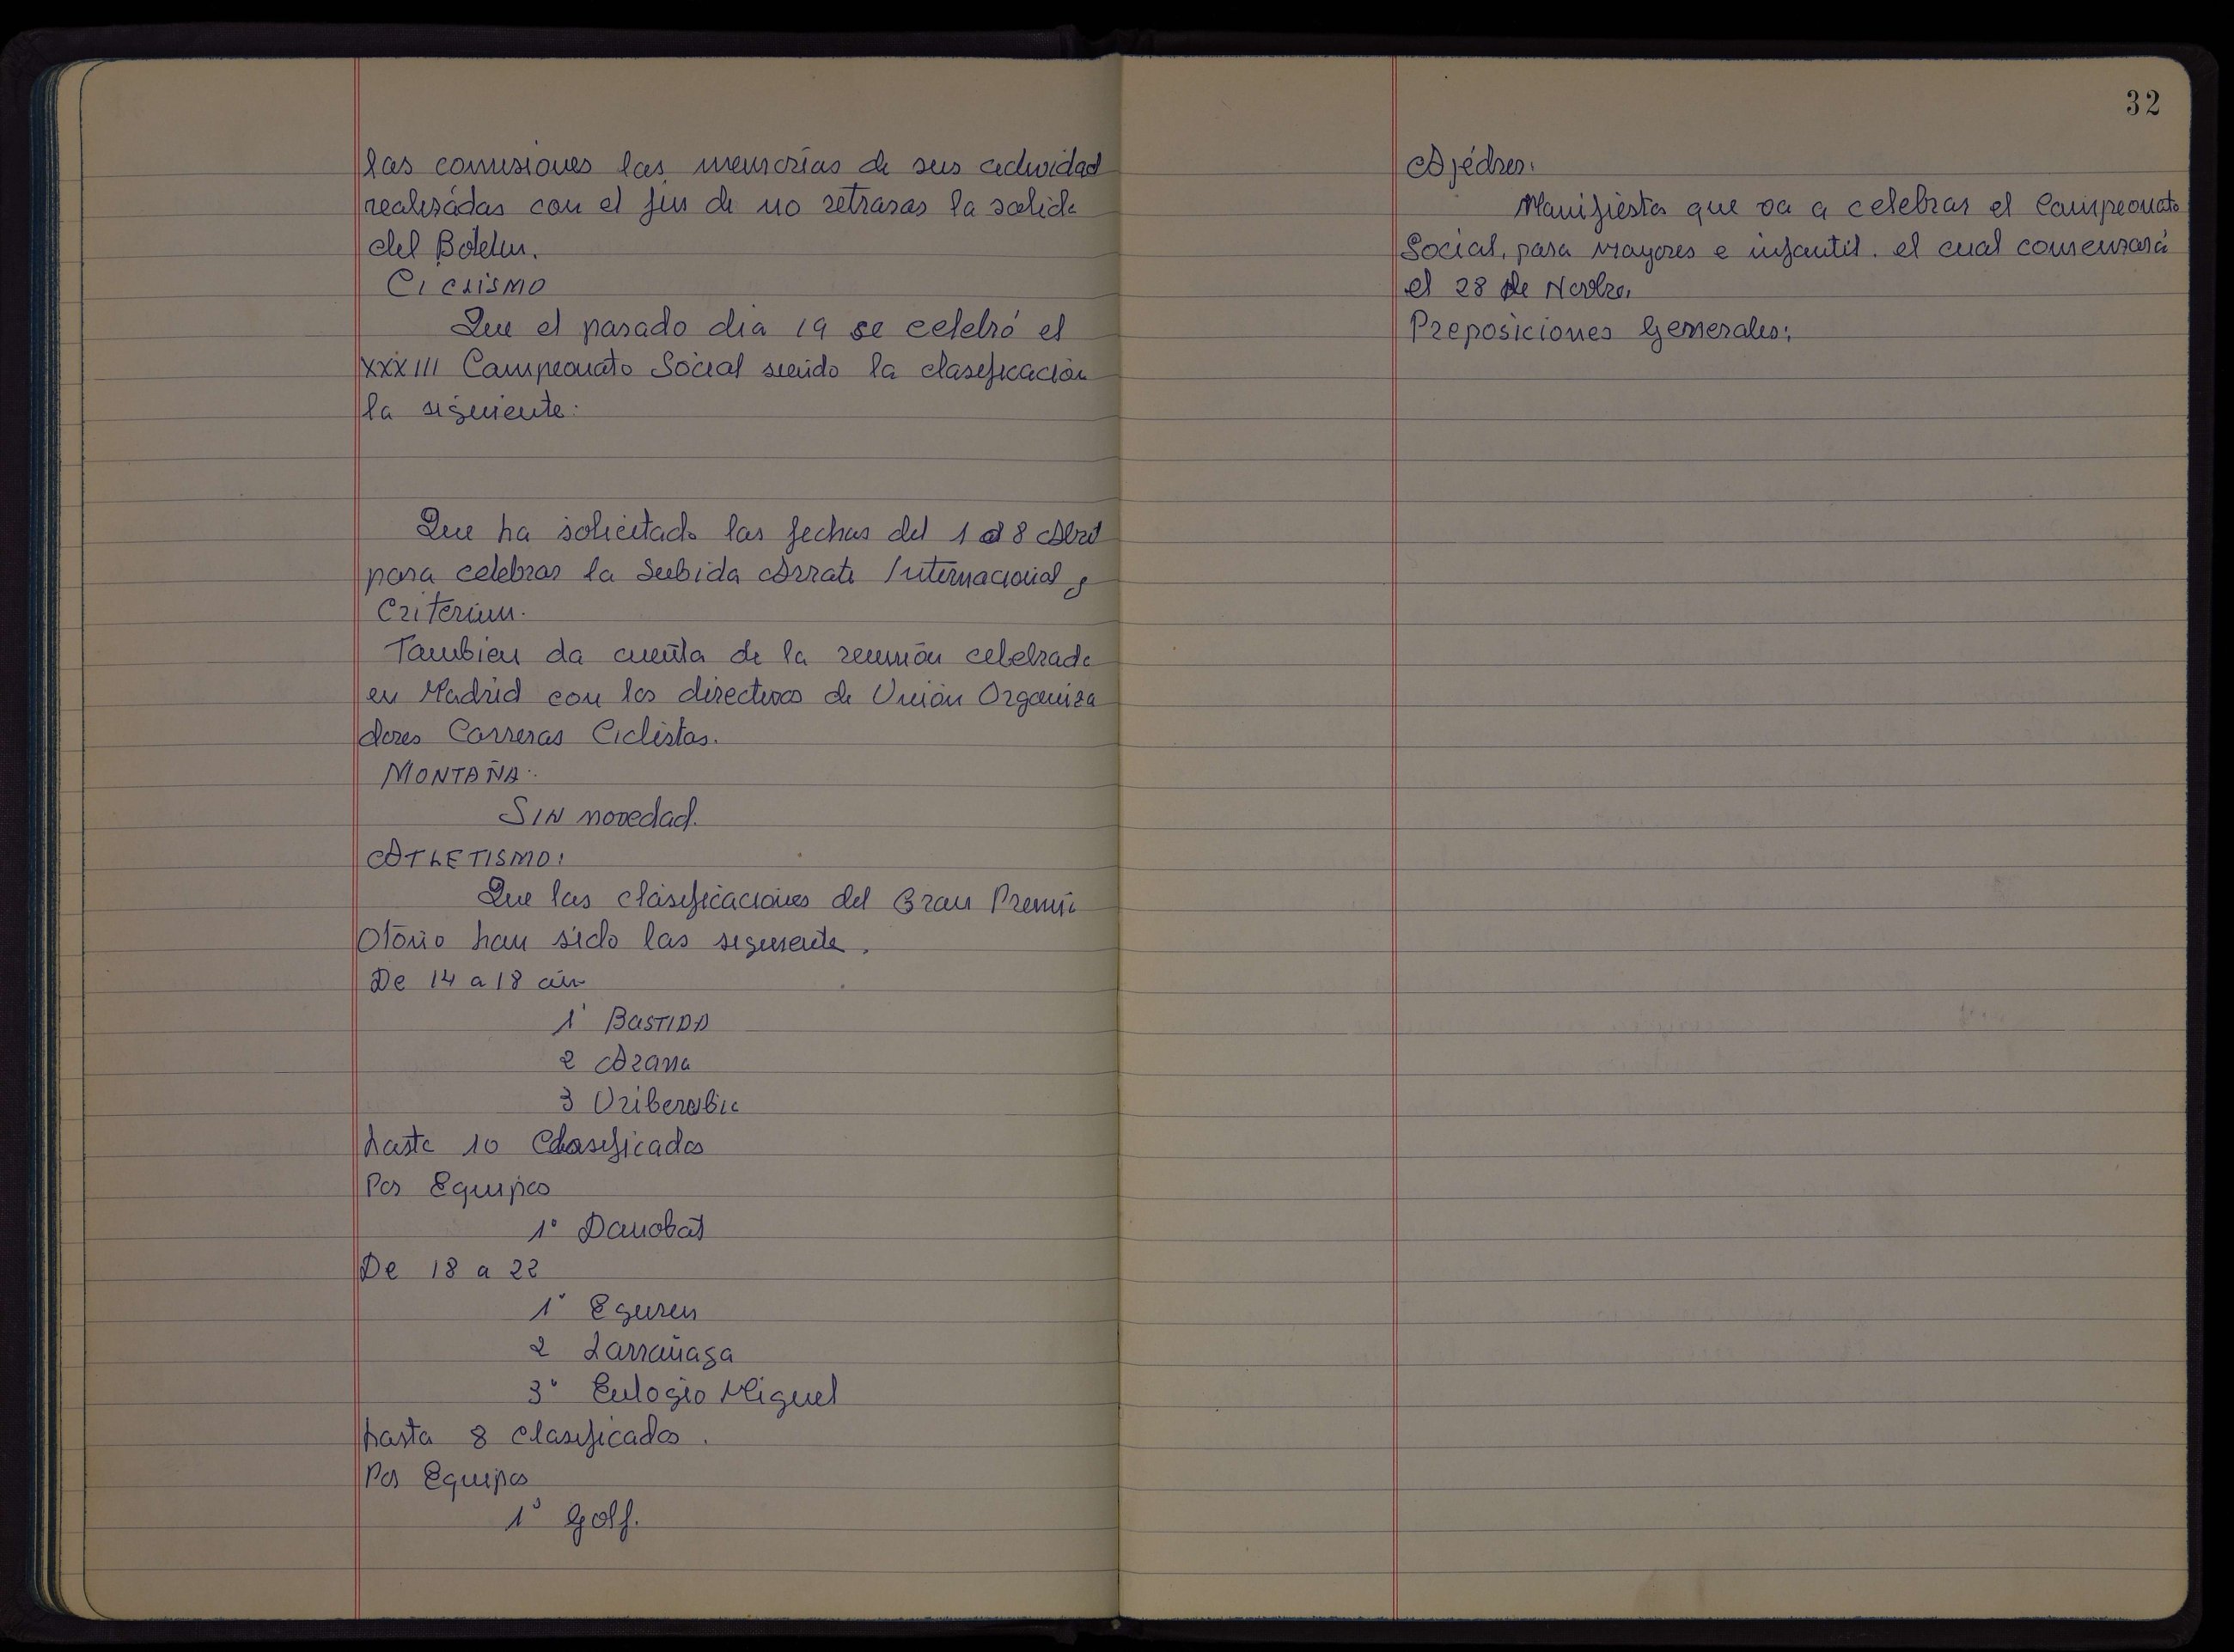 las comisiones las memorias de sus actividad
realizádas con el fin de no retrasar la salida
del Boletin.
Ciclismo
Que el pasado dia 19 se celebró el
XXXIII Campeonato Social siendo la clasificación
la siguiente:
Que ha solicitado las fechas del 1 al 8 Abril
para celebrar la Subida Arrate Internacional y
Criterium.
Tambien da cuenta de la reunión celebrada
en Madrid con los directivos de Unión Organiza
dores Carreras Ciclistas.
MONTAÑA:
SIN novedad.
ATLETISMO:
Que las clasificaciones del Gran Premio
Otoño han sido las siguiente.
De 14 a 18 añ
1º BASTIDA
2 Arana
3
hasta 10 Clasificados
Por Equipos
1º Danobat
De 18 a 22
1º Eguren
2 Larrañaga
3º Eulogio Miguel
hasta 8 clasificados.
Por Equipos
1º Golf.
32
Ajédres:
Manifiesta que va a celebrar el Campeonato
Social, para mayores e infantil. el cual comenzará
el 28 de Novbre.
Preposiciones Generales: